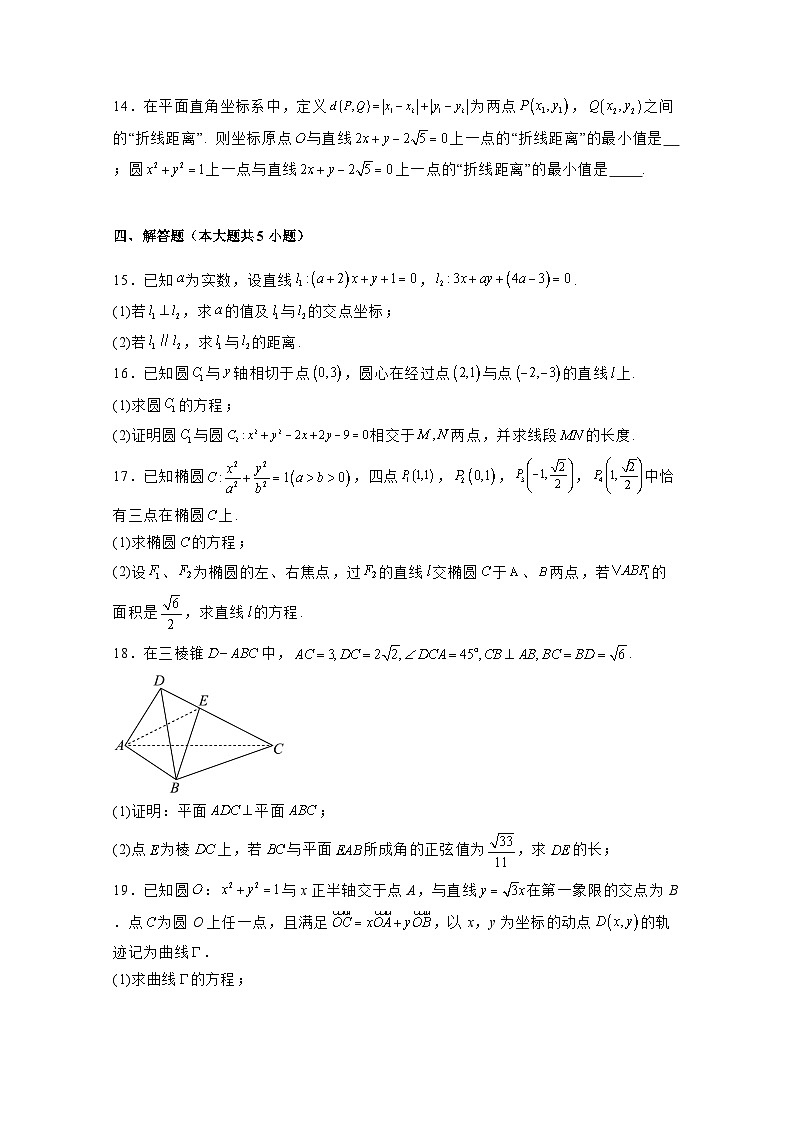 14．在平面直角坐标系中，定义 d(P,Q)=|x₁−x₂|+|y₁−y₂| 为两点 P(x₁,y₁)，Q(x₂,y₂)之间
的“折线距离”. 则坐标原点 O 与直线 2x+y−2√5=0 上一点的“折线距离”的最小值是 __
；圆 x²+y²=1 上一点与直线 2x+y−2√5=0 上一点的“折线距离”的最小值是 ____.
四、解答题（本大题共 5 小题）
15．已知 a 为实数，设直线 l₁:(a+2)x+y+1=0，l₂:3x+ay+(4a−3)=0.
(1)若 l₁⊥l₂，求 a 的值及 l₁ 与 l₂ 的交点坐标；
(2)若 l₁∥l₂，求 l₁ 与 l₂ 的距离.
16．已知圆 C₁ 与 y 轴相切于点 (0,3)，圆心在经过点 (2,1) 与点 (−2,−3) 的直线 l 上.
(1)求圆 C₁ 的方程；
(2)证明圆 C₁ 与圆 C₂:x²+y²−2x+2y−9=0 相交于 M,N 两点，并求线段 MN 的长度.
17．已知椭圆 C:x²/a²+y²/b²=1(a>b>0)，四点 P₁(1,1)，P₂(0,1)，P₃(−1,√2/2)，P₄(1,√2/2)中恰
有三点在椭圆 C 上.
(1)求椭圆 C 的方程；
(2)设 F₁、F₂ 为椭圆的左、右焦点，过 F₂ 的直线 l 交椭圆 C 于 A、B 两点，若 ∨ABF₁ 的
面积是 √6/2，求直线 l 的方程.
18．在三棱锥 D−ABC 中，AC=3,DC=2√2,∠DCA=45°,CB⊥AB,BC=BD=√6.
D
E
A
C
B
(1)证明：平面 ADC⊥平面 ABC；
(2)点 E 为棱 DC 上，若 BC 与平面 EAB 所成角的正弦值为 √33/11，求 DE 的长；
19．已知圆 O：x²+y²=1 与 x 正半轴交于点 A，与直线 y=√3x 在第一象限的交点为 B
．点 C 为圆 O 上任一点，且满足 OC=xOA+yOB，以 x，y 为坐标的动点 D(x,y) 的轨
迹记为曲线 Γ．
(1)求曲线 Γ 的方程；